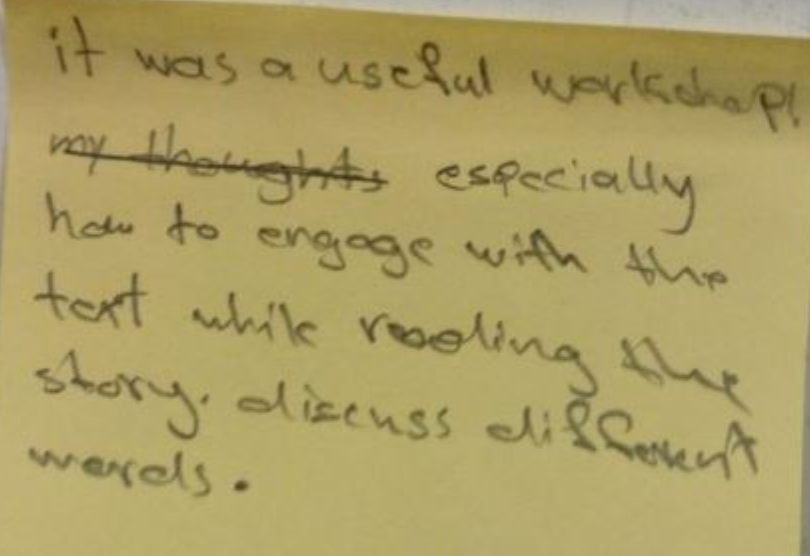 it was a useful workshop!
my thoughts especially
how to engage with the
text while reading the
story. discuss different
words.